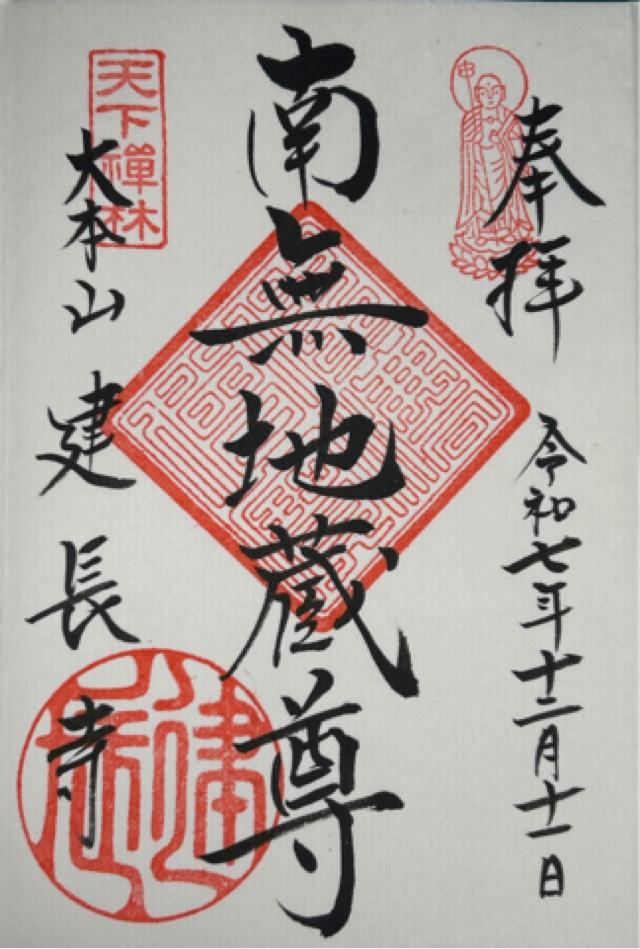 奉拝
令和七年十二月十一日
南無地蔵尊
天下禅林
大本山建長寺